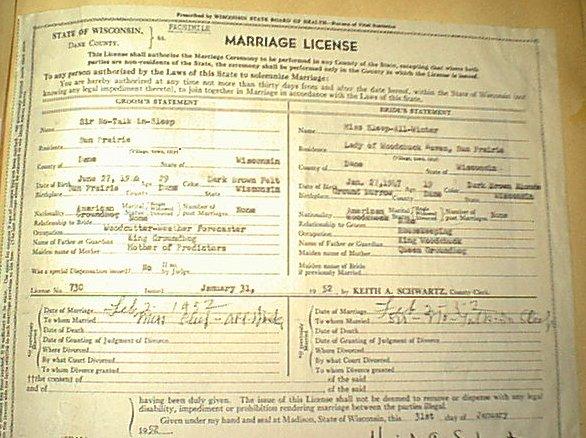 Prescribed by WISCONSIN STATE BOARD OF HEALTH—Bureau of Vital Statistics
STATE OF WISCONSIN,
DANE COUNTY.
ss.
FACSIMILE
MARRIAGE LICENSE
This License shall authorize the Marriage Ceremony to be performed in any County of the State, excepting that where both
parties are non-residents of the State, the ceremony shall be performed only in the County in which the License is issued.
To any person authorized by the Laws of this State to solemnize Marriage:
You are hereby authorized at any time not more than thirty days from and after the date hereof, within the State of Wisconsin (not
knowing any legal impediment thereto), to join together in Marriage in accordance with the Laws of this State.
GROOM'S STATEMENT
Name Sir No-Talk in-Sleep
Residence Sun Prairie
(Village, town, city)
County of Dane State of Wisconsin
Date of Birth June 27, Age 29 Color Dark Brown Felt
Birthplace Sun Prairie County Dane State Wisconsin
Nationality American Groundhog Marital Status Single Widowed Divorced Number of past Marriages None
Relationship to Bride None
Occupation Woodcutter-Weather Forecaster
Name of Father or Guardian King Groundhog
Maiden name of Mother Mother of Predictors
Was a special Dispensation issued? No If so, by Judge
BRIDE'S STATEMENT
Name Miss Sleep-All-Winter
Residence Lady of Woodchuck Haven, Sun Prairie
(Village, town, city)
County of Dane State of Wisconsin
Date of Birth Jan. 27, Age 19 Color Dark Brown Blonde
Birthplace Ground Burrow County Dane State Wisconsin
Nationality American Woodchuck Marital Status Single Widowed Divorced Number of past Marriages None
Relationship to Groom
Occupation Housekeeping
Name of Father or Guardian King Woodchuck
Maiden name of Mother Queen Groundhog
Maiden name of Bride
if previously Married
License No. 730 Issued January 31, 1952, by KEITH A. SCHWARTZ, County Clerk.
If previously Married
Date of Marriage Feb 2 - 1952
To whom Married Miss
Date of Death
Date of Granting of Judgment of Divorce
Where Divorced
By what Court Divorced
To whom Divorce granted
If previously Married
Date of Marriage Feb 2 - 52
To whom Married Sir - No - Talk in Sleep
Date of Death
Date of Granting of Judgment of Divorce
Where Divorced
By what Court Divorced
To whom Divorce granted
††the consent of of the said
and of of the said
having been duly given. The issue of this License shall not be deemed to remove or dispense with any legal
disability, impediment or prohibition rendering marriage between the parties illegal.
Given under my hand and seal at Madison, State of Wisconsin, this 31st day of January
1952